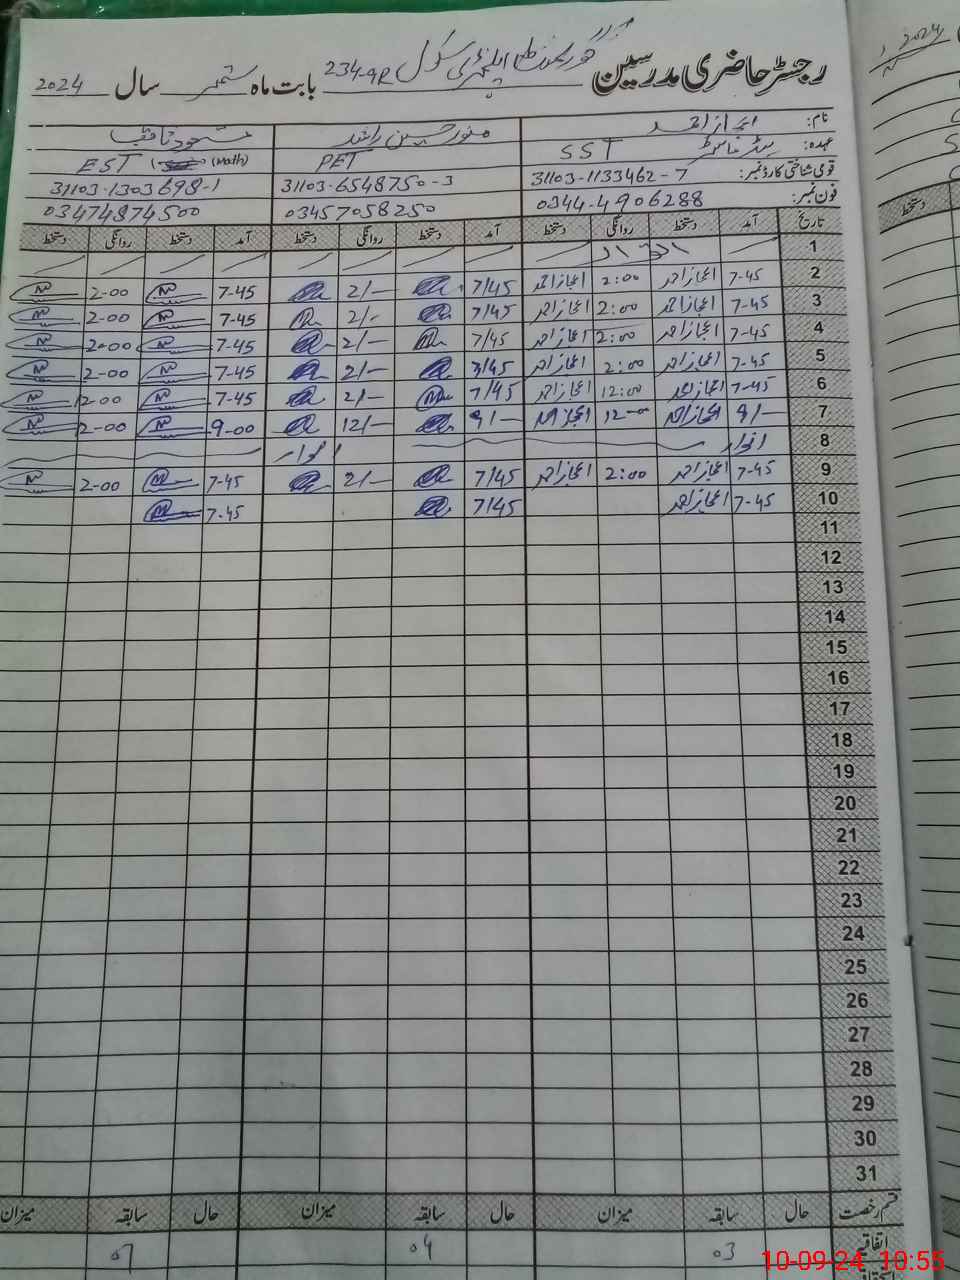 رجسٹر حاضری مدرسین گورنمنٹ ایلیمنٹری سکول 234-9R بابت ماہ ستمبر سال 2024
نام: اعجاز احمد منور حسین راشد مسعود ثاقب
عہدہ: ہیڈ ماسٹر SST PET EST (Math)
قومی شناختی کارڈ نمبر: 31103-1133462-7 31103-6548750-3 31103-1303698-1
فون نمبر: 0344-4906288 03457058250 03474874500
تاریخ آمد دستخط روانگی دستخط آمد دستخط روانگی دستخط آمد دستخط روانگی دستخط
1 اتوار
2 7-45 اعجاز احمد 2:00 اعجاز احمد 7/45 2/- 7-45 2-00
3 7-45 اعجاز احمد 2:00 اعجاز احمد 7/45 2/- 7-45 2-00
4 7-45 اعجاز احمد 2:00 اعجاز احمد 7/45 2/- 7-45 2-00
5 7-45 اعجاز احمد 2:00 اعجاز احمد 7/45 2/- 7-45 2-00
6 7-45 اعجاز احمد 12:00 اعجاز احمد 7/45 2/- 7-45 12-00
7 9/- اعجاز احمد 12-00 اعجاز احمد 9/- 12/- 9-00 2-00
8 اتوار اتوار
9 7-45 اعجاز احمد 2:00 اعجاز احمد 7/45 2/- 7-45 2-00
10 7-45 اعجاز احمد 7/45 7-45
11
12
13
14
15
16
17
18
19
20
21
22
23
24
25
26
27
28
29
30
31
قسم رخصت حال سابقہ میزان حال سابقہ میزان حال سابقہ میزان
اتفاقیہ 03 04 07
10-09-24 10:55
2024
دستخط